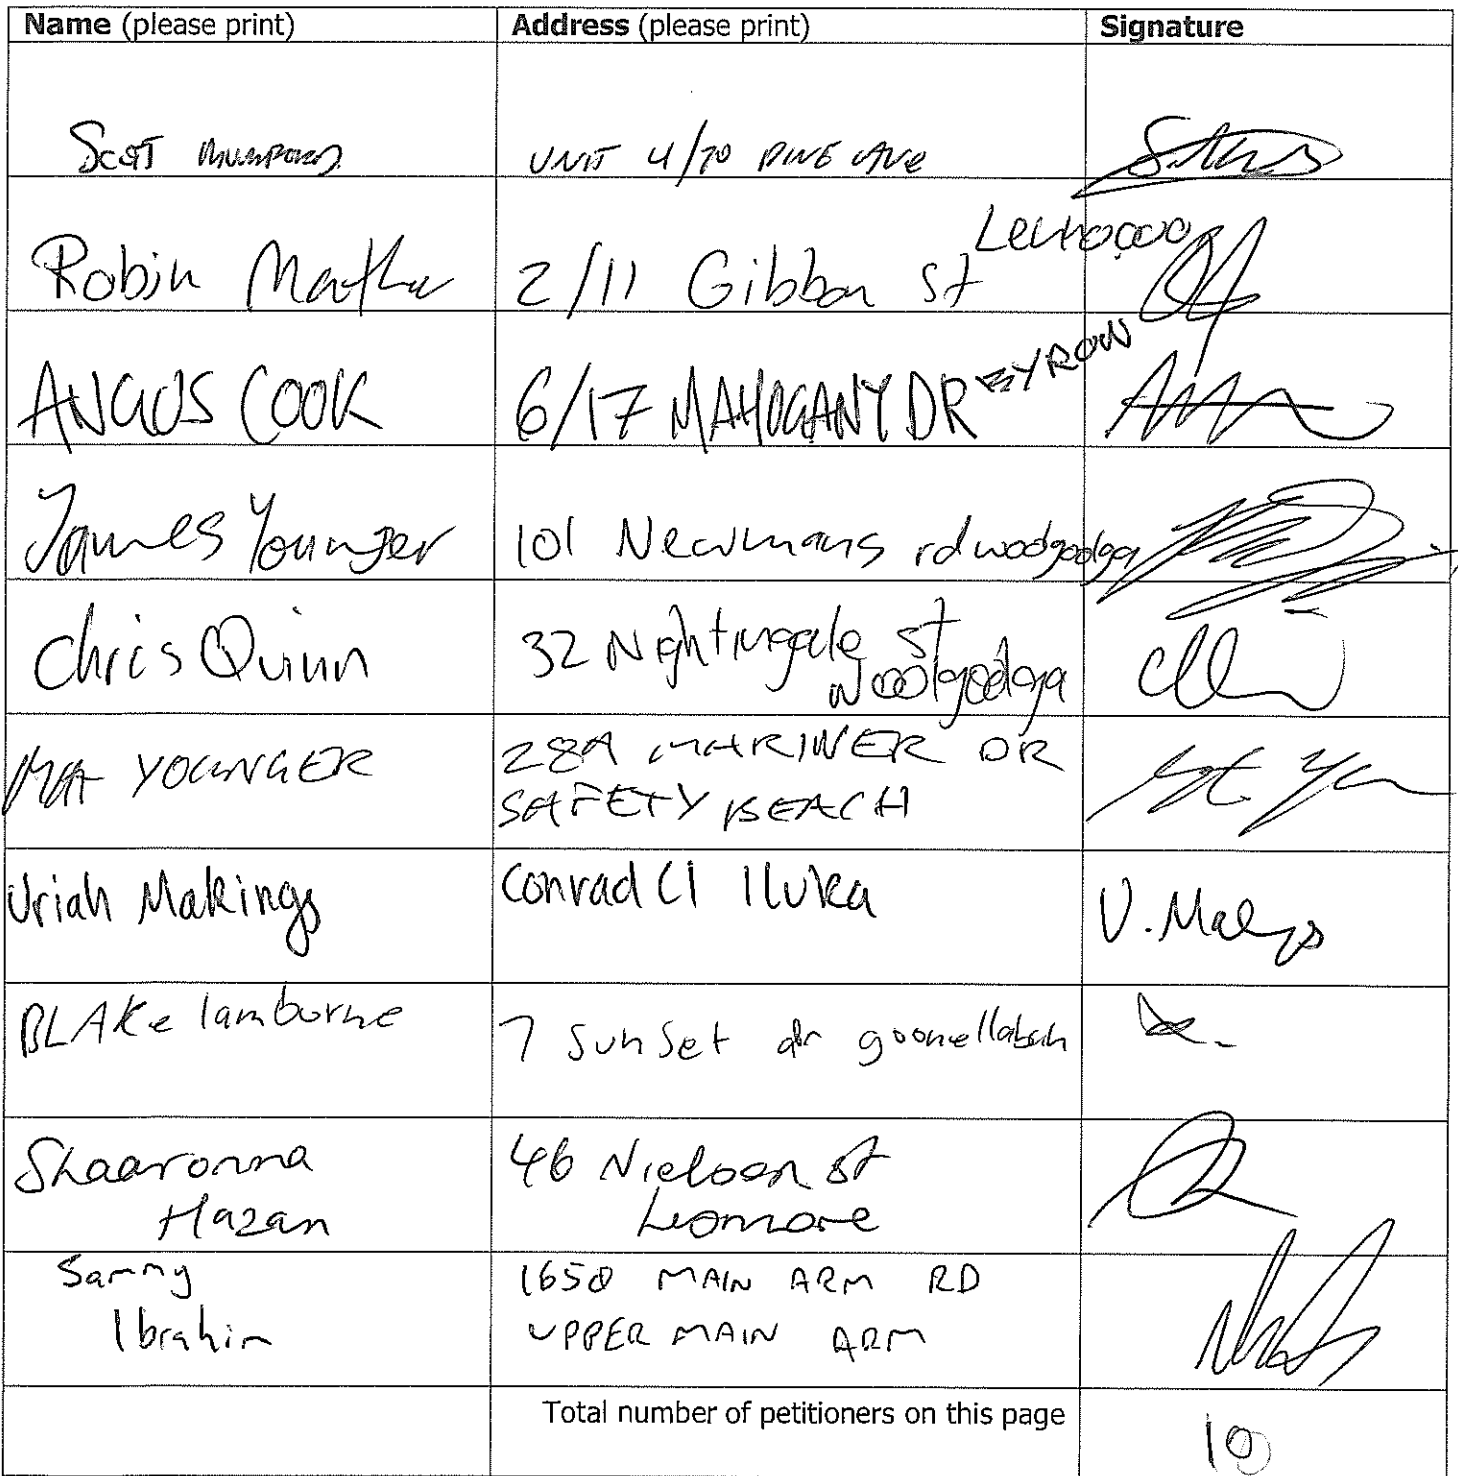 Name (please print) Address (please print) Signature
Scott UNIT 4/70 PINE AVE
Robin Mather 2/11 Gibbon St
ANGUS COOK 6/17 MAHOGANY DR BYRON
James Younger 101 Newmans rd woolgoolga
Chris Quinn 32 Nightingale St
Woolgoolga
MA YOUNGER 28A MARINER DR
SAFETY BEACH
Uriah Makings Conrad Cl Iluka U. Makings
BLAKe lamburne 7 Sunset dr goonellabah
Shaaronna 46 Nielson St
Hazan Lismore
Sammy 1658 MAIN ARM RD
Ibrahim UPPER MAIN ARM
Total number of petitioners on this page 10